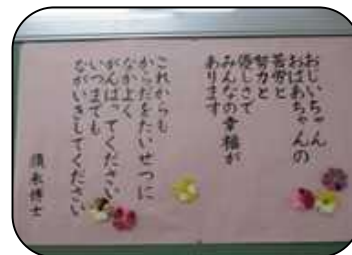 おじいちゃん
おばあちゃんの
苦労と
努力と
優しさで
みんなの幸福が
あります
これからも
からだをたいせつに
なかよく
がんばってください
いつまでも
ながいきしてください
須永博士